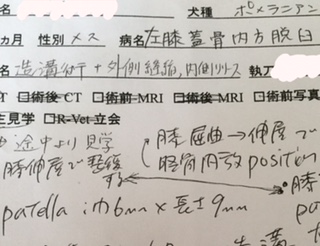 犬種 ポメラニアン
カ月 性別 メス 病名 左膝蓋骨内方脱臼
名 造溝術 + 外側縫縮, 内側リリース 執刀
□術後CT □術前MRI □術後MRI □術前写真
見学 □R-Vet立会
途中より見学
膝屈曲→伸展で
膝伸展で
脛骨内旋 position
patella 巾6mm × 長さ9mm